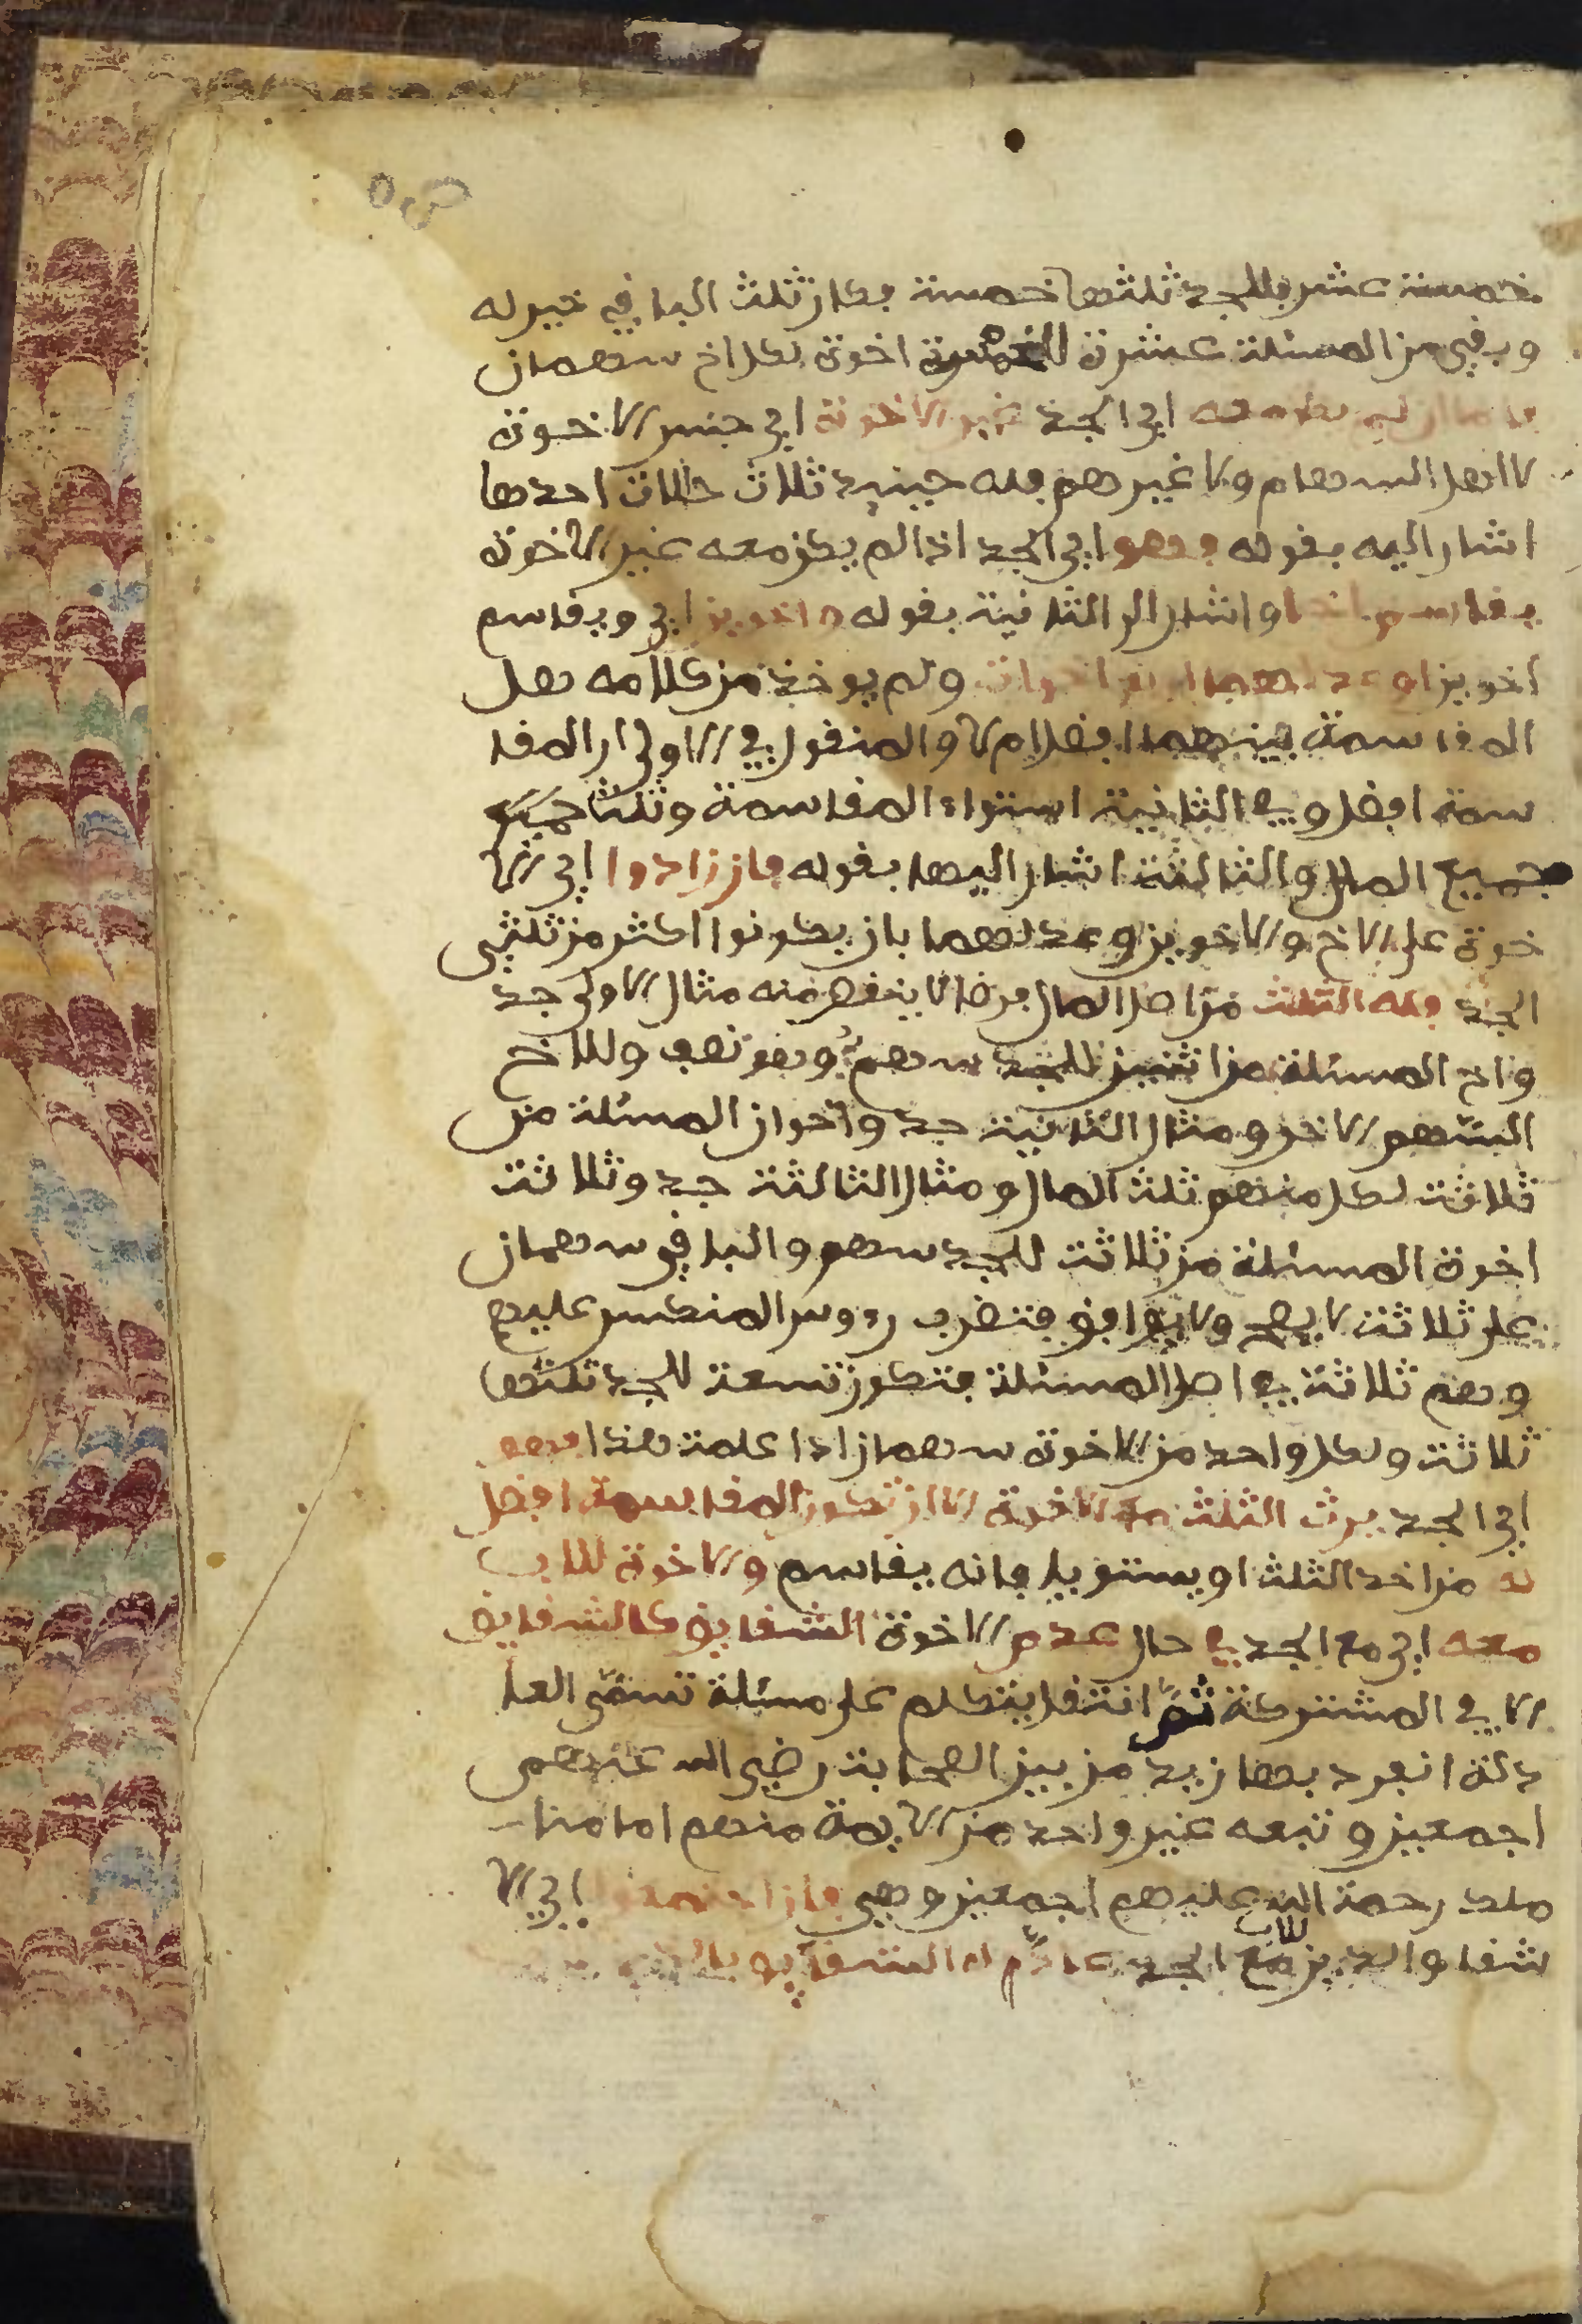 ص ٥
خمسة عشر فللجد ثلثها خمسة فكان ثلث الباقي خير له
وبقي من المسئلة عشرة للخمسة اخوة لكل اخ سهمان
فاما ان لم يكن معه اي الجد غير الاخوة اي جنس الاخوة
لا اهل السهام ولا غيرهم فله حينيذ ثلاث حالات احدها
اشار اليه بقوله فهو اي الجد اذا لم يكن معه غير الاخوة
يقاسم اخا واشار الى الثانية بقوله واخوين اي ويقاسم
اخوين او عدلهما اربع اخوات ولم يوخذ من كلامه هل
المقاسمة بينهما افضل ام لا والمنقول في الاولى ان المقا
سمة افضل وفي الثانية استواء المقاسمة وثلث
جميع المال والثالثة اشار اليها بقوله فان زادوا اي الا
خوة على الاخ والاخوين وعدلهما بان يكونوا اكثر من ثلثي
الجد فله الثلث من اصل المال فرضا لا ينقص منه مثال الاولى جد
واخ المسئلة من اثنين للجد سهم وهو نصف وللاخ
السهم الاخر ومثال الثانية جد واخوان المسئلة من
ثلاثة لكل منهم ثلث المال ومثال الثالثة جد وثلاثة
اخوة المسئلة من ثلاثة للجد سهم والباقي سهمان
على ثلاثة لا يصح ولا يوافق فتضرب رءوس المنكسر عليهم
وهم ثلاثة في اصل المسئلة فتكون تسعة للجد ثلثها
ثلاثة ولكل واحد من الاخوة سهمان اذا علمت هذا فهو
اي الجد يرث الثلث مع الاخوة الا ان تكون المقاسمة افضل
له من اخذ الثلث او يستويا فانه يقاسم والاخوة للاب
معه اي مع الجد في حال عدم الاخوة الشقايق كالشقايق
الا في المشتركة ثم انتقل يتكلم على مسئلة تسمى المعا
دلة انفرد بها زيد من بين الصحابة رضي الله عنهم
اجمعين وتبعه غير واحد من الايمة منهم امامنا
ملك رحمة الله عليهم اجمعين وهي فان اجتمعوا اي الا
شقا والذين للاب مع الجد عاده الشقايق بالذين